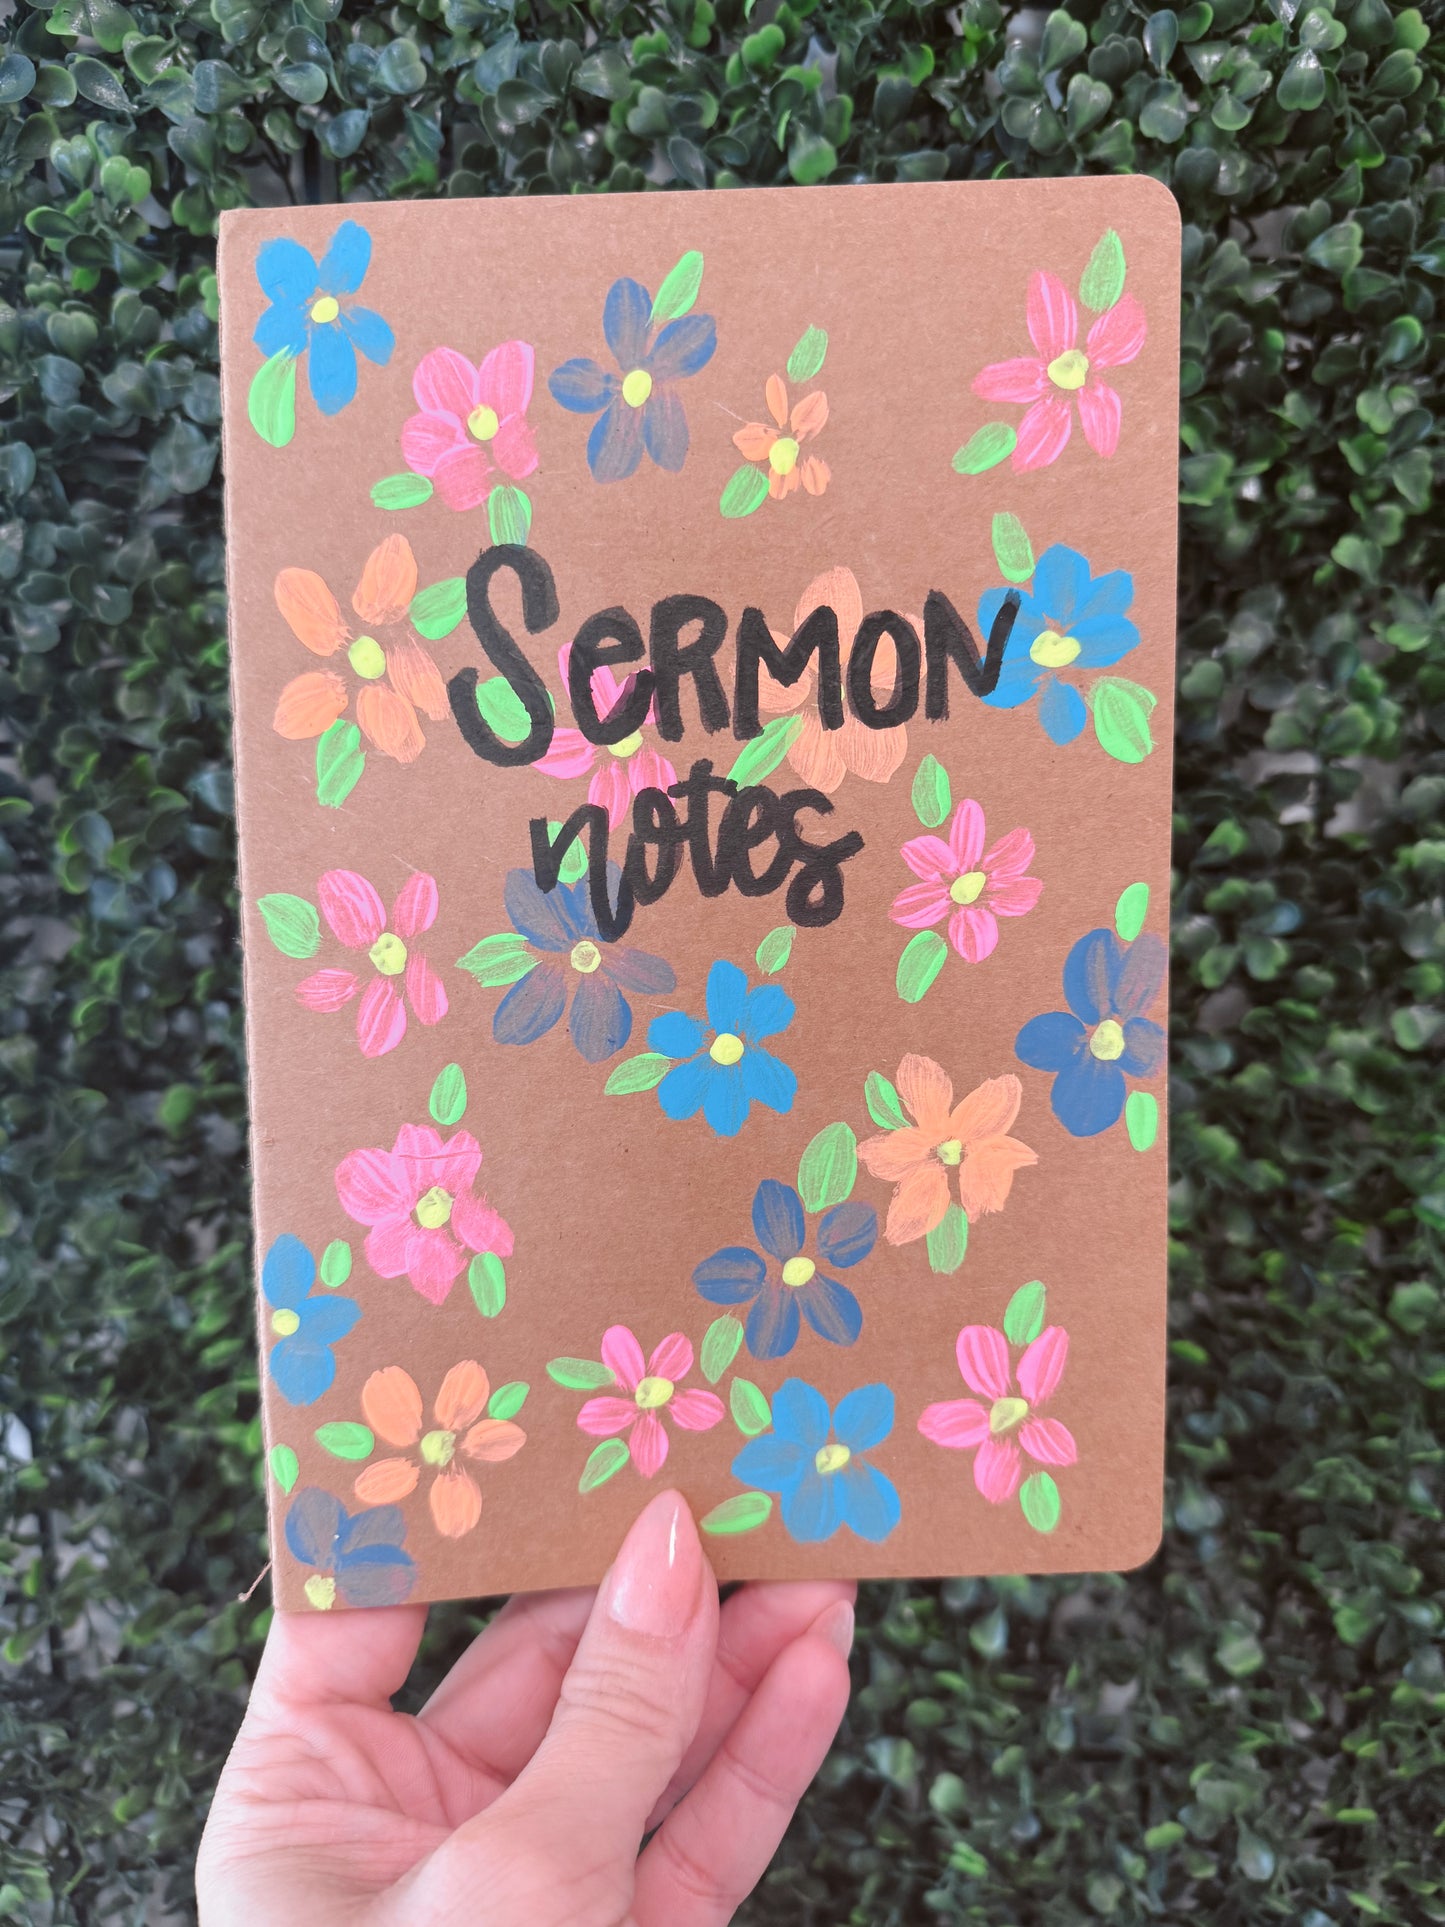 SeRMON
notes